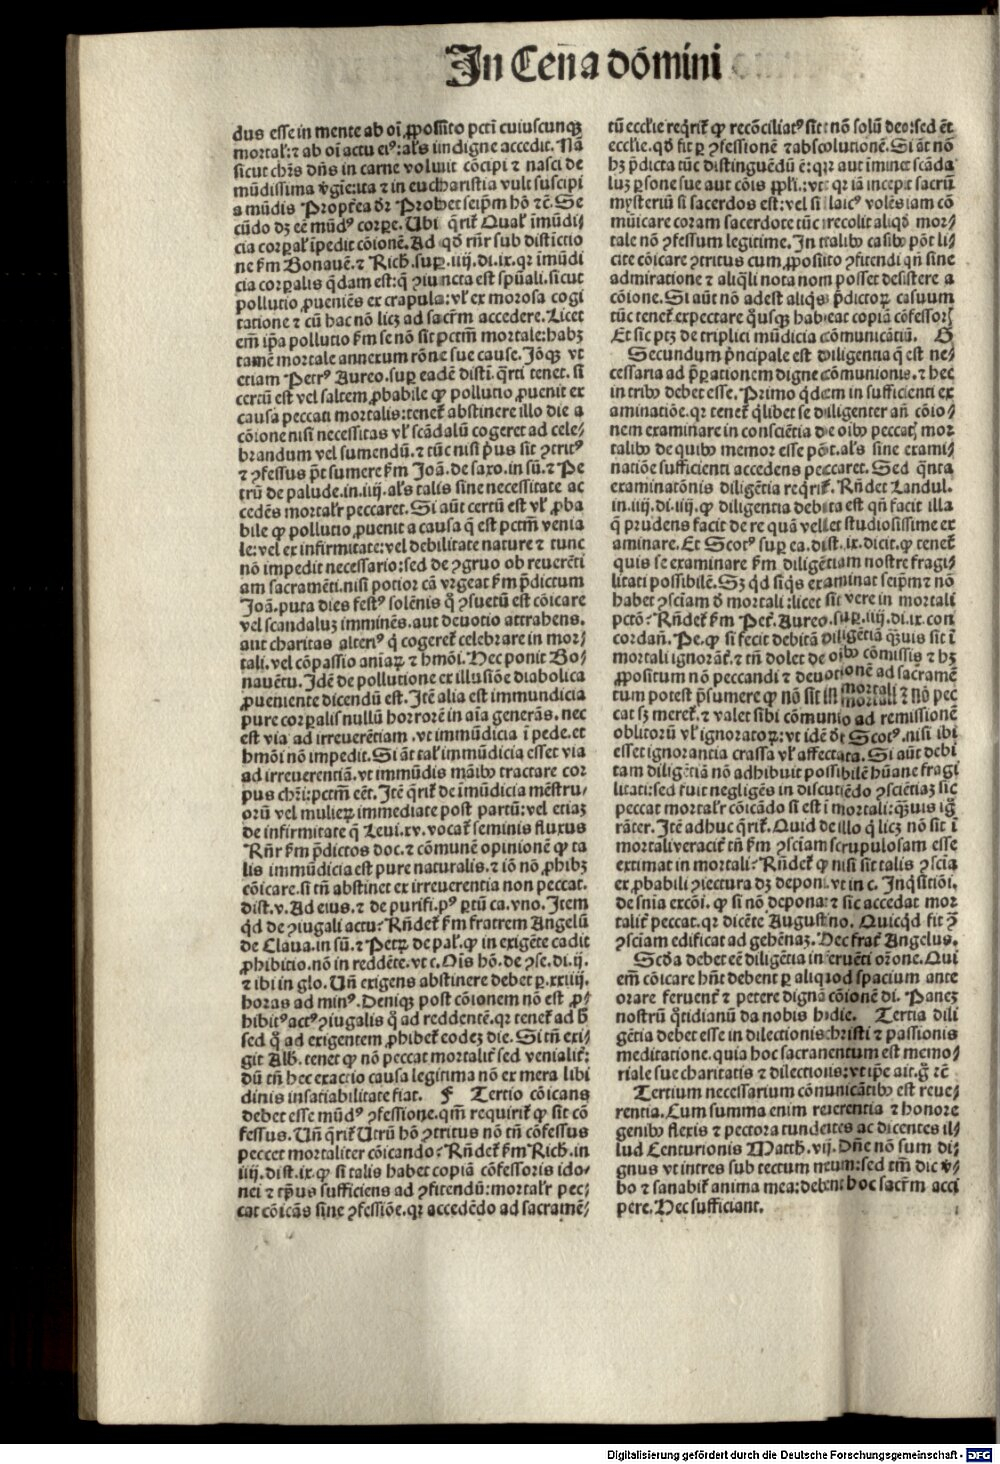 In Cena dōmini
dus esse in mente ab oī ꝓposito pctī cuiuscunqꝫ
mortal̕:⁊ ab oī actu eiꝰ:al̕s indigne accedit. Nā
sicut chr̄s dn̄s in carne voluit cōcipi ⁊ nasci de
mūdissima v̕gīe:ita ⁊ in eucharistia vult suscipi
a mūdis Propt̕ea dr̄ Probet seip̄m hō ⁊c̄. Se
cūdo dꝫ eē mūdꝰ corꝑe. Ubi q̄rit̕ Qual̕ īmūdi⸗
cia corꝑal̕ īpedit cōionē. Ad qd̄ rn̄r sub distīctio
ne ẜm Bonauē.⁊ Rich̄.suꝑ.iiij.di.ix.qꝛ īmūdi
cia corꝑalis q̄dam est:q̄ ꝯiuncta est spūali.sicut
pollutio ꝓueniēs ex crapula:vl̕ ex morosa cogi
tatione ⁊ cū hac nō licꝫ ad sacr̄m accedere. Licet
em̄ ip̄a pollutio ẜm se nō sit pctm̄ mortale:habꝫ
tamē mortale annexum rōne sue cause. Jōqꝫ vt
etiam Petrꝰ Aureo.suꝑ eadē distī.q̄rti tenet. si
certū est vel saltem ꝓbabile ꝙ pollutio ꝓuenit ex
causa peccati mortalis:tenet̕ abstinere illo die a
cōione nisi necessitas vl̕ scādalū cogeret ad cele⸗
brandum vel sumendū.⁊ tūc nisi p̄us sit ꝯtritꝰ
⁊ ꝯfessus p̄t sumere ẜm Joā.de saxo.in sū.⁊ Pe
trū de palude.in.iiij.al̕s talis sine necessitate ac
cedēs mortal̕r peccaret. Si aūt certū est vl̕ ꝓba
bile ꝙ pollutio ꝓuenit a causa q̄ est pctm̄ venia
le:vel ex infirmitate:vel debilitate nature ⁊ tunc
nō impedit necessario:sed de ꝯgruo ob reuerēti
am sacramēti.nisi potior cā vrgeat ẜm p̄dictum
Joā.puta dies festꝰ solēnis q̄ ꝯsuetū est cōicare
vel scandaluꝫ imminēs.aut deuotio attrahens.
aut charitas alteriꝰ q̄ cogeret̕ celebrare in mor⸗
tali.vel cōpassio anīaꝝ ⁊ hmōi. Hec ponit Bo⸗
nauētu. Idē de pollutione ex illusiōe diabolica
ꝓueniente dicendū est. Itē alia est immundicia
pure corꝑalis nullū horrorē in aīa generās.nec
est via ad irreuerētiam.vt immūdicia ī pede.et
hmōi nō impedit. Si āt tal̕ immūdicia esset via
ad irreuerentiā.vt immūdis māibꝰ tractare cor
pus chr̄i:pctm̄ eēt. Itē q̄rit̕ de īmūdicia mēstru⸗
orū vel mulieꝝ immediate post partū:vel etiaꝫ
de infirmitate q̄ Leui.xv.vocat̕ seminis fluxus
Rn̄r ẜm p̄dictos doc.⁊ cōmunē opinionē ꝙ ta
lis immūdicia est pure naturalis.⁊ iō nō ꝓhibꝫ
cōicare.si tn̄ abstinet ex irreuerentia non peccat.
dist.v. Ad eius.⁊ de purifi.pꝰ ꝑtū ca.vno. Item
qd̄ de ꝯiugali actu? Rn̄det̕ ẜm fratrem Angelū
de Claua.in sū.⁊ Petꝝ de pal̕.ꝙ in exigēte cadit
ꝓhibitio.nō in reddēte.vt c. Ois hō.de ꝯse.di.ij.
⁊ ibi in glo. Un̄ exigens abstinere debet ꝑ.xxiiij.
horas ad minꝰ. Deniqꝫ post cōionem nō est ꝓ⸗
hibitꝰ actꝰ ꝯiugalis q̄ ad reddentē.qꝛ tenet̕ ad h̄
sed q̄ ad exigentem ꝓhibet̕ eodeꝫ die. Si tn̄ exi⸗
git Alb̄. tenet ꝙ nō peccat mortalit̕ sed venialit̕:
dū tn̄ hec exactio causa legitima nō ex mera libi
dinis insatiabilitate fiat. F Tertio cōicans
debet esse mūdꝰ ꝯfessione.qm̄ requirit̕ ꝙ sit cō
fessus. Un̄ q̄rit̕ Utrū hō ꝯtritus nō tn̄ cōfessus
peccet mortaliter cōicando? Rn̄det̕ ẜm Rich̄.in
iiij.dist.ix.ꝙ si talis habet copiā cōfessoris ido⸗
nei ⁊ tp̄us sufficiens ad ꝯfitendū:mortal̕r pec⸗
cat cōicās sine ꝯfessiōe.qꝛ accedēdo ad sacramē⸗
tū eccl̕ie reqrit̕ ꝙ recōciliatꝰ sit:nō solū deo:sed ēt
eccl̕ie.qd̄ fit ꝑ ꝯfessionē ⁊ absolutionē. Si āt nō
hꝫ p̄dicta tūc distinguēdū ē:qꝛ aut īminet scāda
luꝫ ꝑsone sue aut cōis ppl̕i.:vt qꝛ iā incepit sacrū
mysteriū si sacerdos est:vel si laicꝰ volēs iam cō
mūicare coram sacerdote tūc recolit aliqd̄ mor⸗
tale nō ꝯfessum legitime. In talibꝰ casibꝰ pōt li⸗
cite cōicare ꝯtritus cum ꝓposito ꝯfitendi qn̄ sine
admiratione ⁊ aliq̄li nota nom posset desistere a
cōione. Si aūt nō adest aliqs p̄dictoꝝ casuum
tūc tenet̕ expectare q̄usqꝫ habeat copiā cōfessorꝭ
Et sic ptꝫ de triplici mūdicia cōmunicātiū. G
Secundum p̄ncipale est diligentia q̄ est ne⸗
cessaria ad p̄ꝑationem digne cōmunionis.⁊ hec
in tribꝰ debet esse. Primo q̄dem in sufficienti ex
aminatiōe.qꝛ tenet̕ q̄libet se diligenter an̄ cōio⸗
nem examinare in consciētia de oībꝰ peccatꝭ mor
talibꝰ de quibꝰ memor esse pōt.al̕s sine exami⸗
natiōe sufficienti accedens peccaret. Sed q̄nta
examinatōnis diligētia reqrit̕. Rn̄det Landul.
in.iiij.di.iiij.ꝙ diligentia debita est qn̄ facit illa
q̄ prudens facit de re quā vellet studiosissime ex
aminare. Et Scotꝰ suꝑ ea.dist.ix.dicit.ꝙ tenet̕
quis se examinare ẜm diligētiam nostre fragi⸗
litati possibilē. Sꝫ qd̄ siqs examinat seip̄m ⁊ nō
habet ꝯsciam d̄ mortali:licet sit vere in mortali
pctō? Rn̄det̕ ẜm Pet̕. Aureo.suꝑ.iiij.di.ix.con
cordan̄. Pe.ꝙ si fecit debitā diligētiā q̄uis sit ī
mortali ignorāt̕.⁊ tn̄ dolet de oībꝰ cōmissis ⁊ hꝫ
ꝓpositum nō peccandi ⁊ deuotionē ad sacramē
tum potest p̄sumere ꝙ nō sit in mortali ⁊ nō pec
cat sꝫ meret̕.⁊ valet sibi cōmunio ad remissionē
oblitorū vl̕ ignoratoꝝ:vt idē d̄t Scotꝰ.nisi ibi
esset ignorantia crassa vl̕ affectata. Si aūt debi
tam diligētiā nō adhibuit possibilē hūane fragi
litati:sed fuit negligēs in discutiēdo ꝯsciētiaꝫ sic
peccat mortal̕r cōicādo si est ī mortali:q̄uis ig̅
rāter. Itē adhuc q̄rit̕. Quid de illo q̄ licꝫ nō sit ī
mortali veracit̕ tn̄ ẜm ꝯsciam scrupulosam esse
extimat in mortali? Rn̄det̕ ꝙ nisi sit talis ꝯscia
ex ꝓbabili ꝯiectura dꝫ deponi.vt in c. Inq̄sitiōi.
de snīa excōi.ꝙ si nō deponat ⁊ sic accedat mor
talit̕ peccat.qꝛ dicēte Augustino. Quicqd̄ fit ꝯ̄
ꝯsciam edificat ad gehēnaꝫ. Hec frat̕ Angelus.
Scd̄a debet eē diligētia in feruēti or̄one. Qui
em̄ cōicare hn̄t debent ꝑ aliquod spacium ante
orare feruent̕ ⁊ petere dignā cōionē di. Paneꝫ
nostrū q̄tidianū da nobis hodie. Tertia dili
gētia debet esse in dilectionis christi ⁊ passionis
meditatione.quia hoc sacramentum est memo⸗
riale sue charitatis ⁊ dilectionis:vt ip̄e ait.ḡ ⁊c̄
Tertium necessarium cōmunicātibꝰ est reue⸗
rentia. Cum summa enim reuerentia ⁊ honore
genibꝰ flexis ⁊ pectora tundentes ac dicentes il⸗
lud Centurionis Matth. vij. Dn̄e nō sum di⸗
gnus vt intres sub tectum meum:sed tm̄ dic v̕⸗
bo ⁊ sanabit̕ anima mea:debent hoc sacr̄m acci
pere. Hec sufficiant.
Digitalisierung gefördert durch die Deutsche Forschungsgemeinschaft - DFG